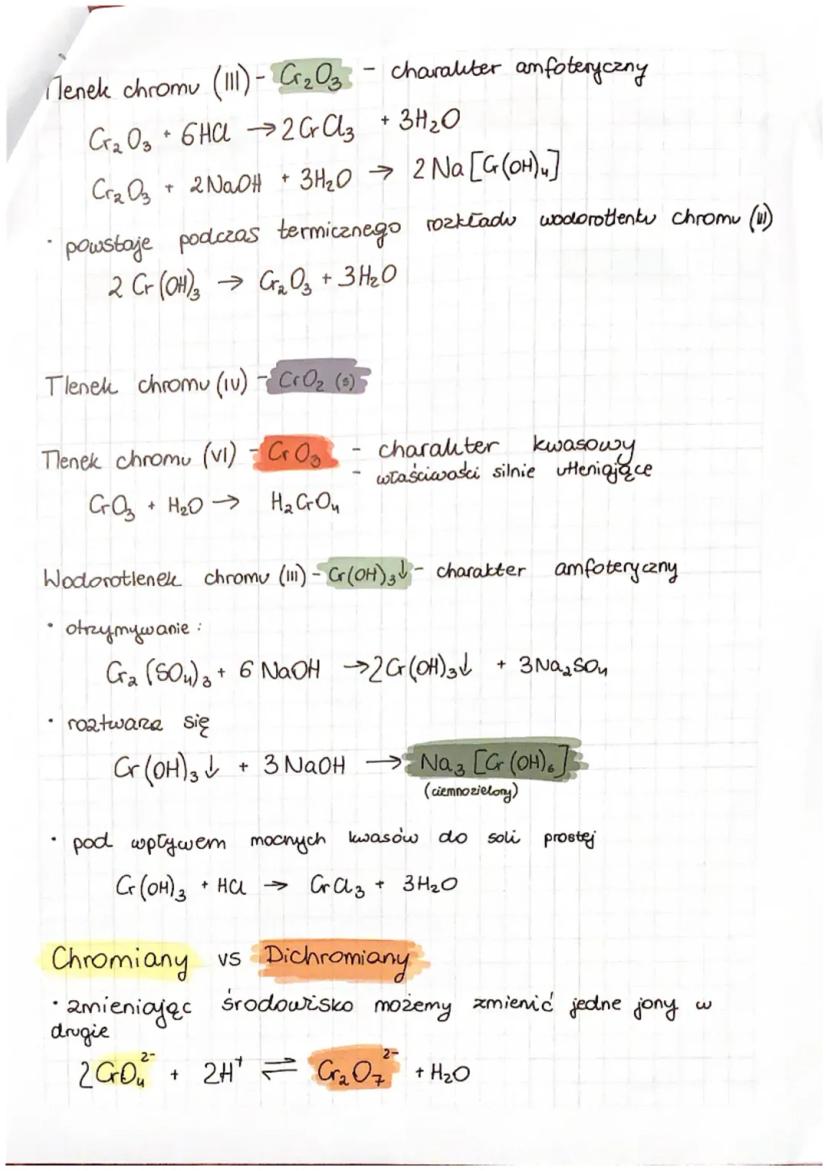 Tlenek chromu (III) - Cr₂O₃ - charakter amfoteryczny
Cr₂O₃ + 6HCl → 2CrCl₃ + 3H₂O
Cr₂O₃ + 2NaOH + 3H₂O → 2Na[Cr(OH)₄]
• powstaje podczas termicznego rozkładu wodorotlenku chromu (III)
2 Cr(OH)₃ → Cr₂O₃ + 3H₂O
Tlenek chromu (IV) - CrO₂ (s)
Tlenek chromu (VI) - CrO₃ - charakter kwasowy
- właściwości silnie utleniające
CrO₃ + H₂O → H₂CrO₄
Wodorotlenek chromu (III) - Cr(OH)₃↓ - charakter amfoteryczny
• otrzymywanie:
Cr₂(SO₄)₃ + 6 NaOH → 2Cr(OH)₃↓ + 3Na₂SO₄
• roztwarza się
Cr(OH)₃↓ + 3 NaOH → Na₃[Cr(OH)₆]
(ciemnozielony)
• pod wpływem mocnych kwasów do soli prostej
Cr(OH)₃ + HCl → CrCl₃ + 3H₂O
Chromiany vs Dichromiany
• zmieniając środowisko możemy zmienić jedne jony w
drugie
2CrO₄²⁻ + 2H⁺ ⇌ Cr₂O₇²⁻ + H₂O